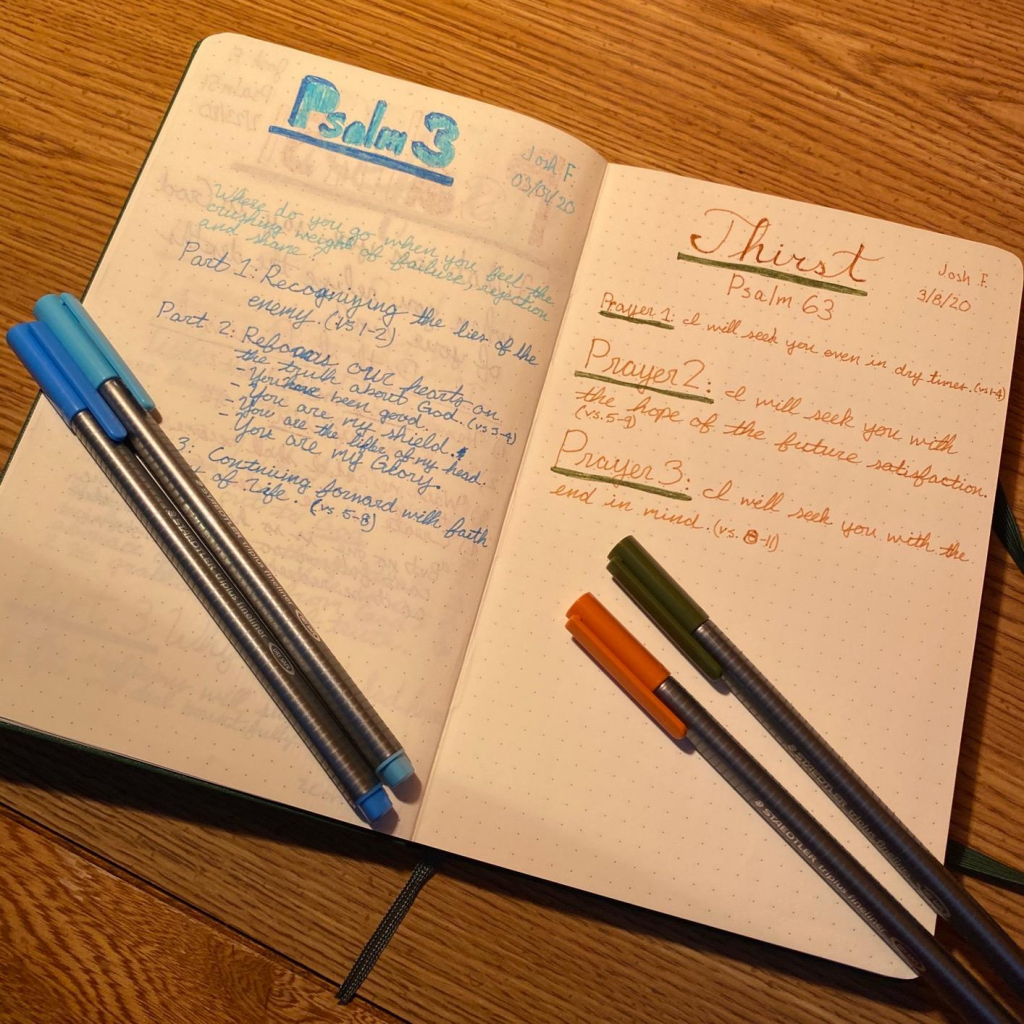 Psalm 3
Josh F.
03/01/20
Where do you go when you feel the
crushing weight of failure, rejection
and shame
Part 1: Recognizing the lies of the
enemy. (vs 1-2)
Part 2: Refocus our hearts on
the truth about God. (vs 3-4)
- You have been good.
- You are my shield.
- You are the lifter of my head.
You are my Glory.
3. Continuing forward with faith
of Life. (vs 5-8)
Thirst
Psalm 63
Josh F.
3/8/20
Prayer 1: I will seek you even in dry times. (vs 1-4)
Prayer 2: I will seek you with
the hope of the future satisfaction.
(vs. 5-8)
Prayer 3: I will seek you with the
end in mind. (vs. 8-11)
STAEDTLER triplus fineliner
STAEDTLER triplus fineliner
STAEDTLER triplus fineliner
STAEDTLER triplus fineliner